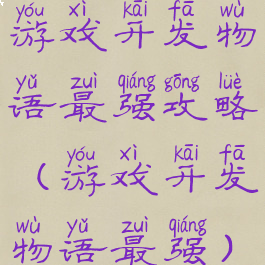 yóu xì kāi fā wù
游戏开发物
yǔ zuì qiáng gōng lüè
语最强攻略
yóu xì kāi fā
（游戏开发
wù yǔ zuì qiáng
物语最强）